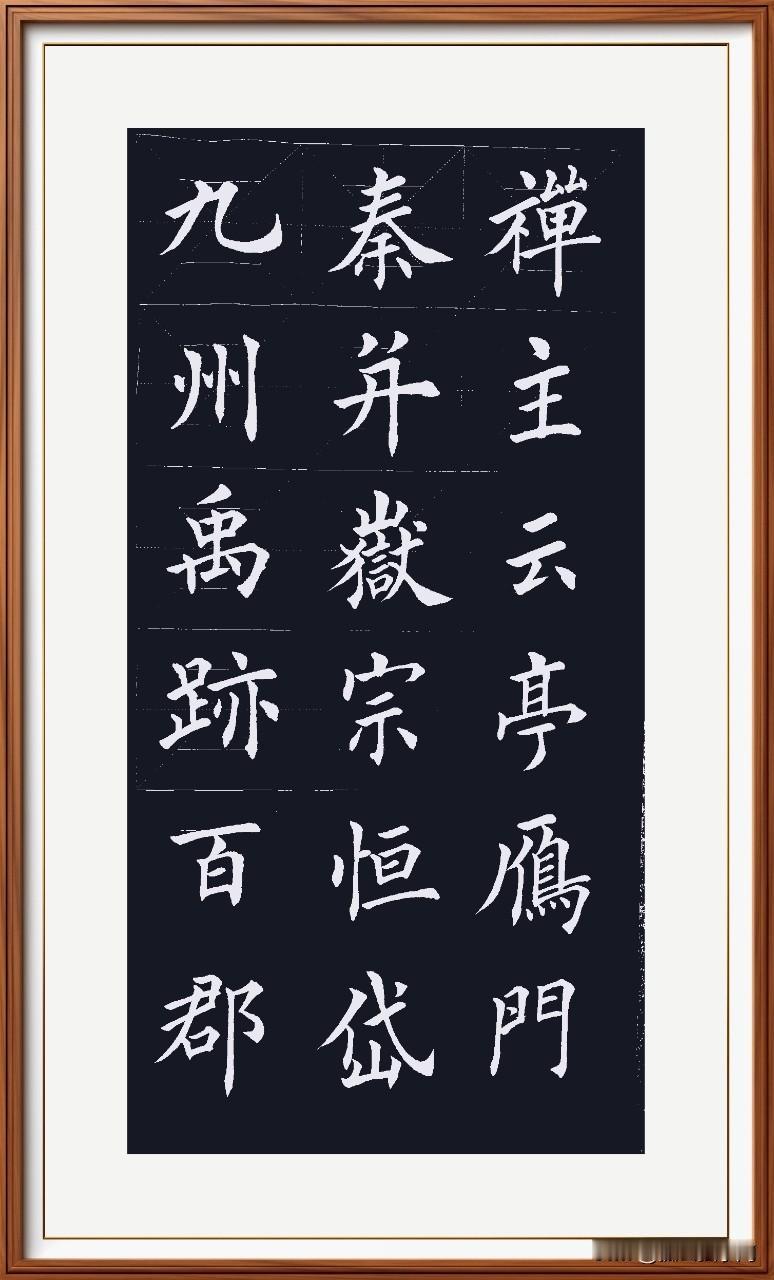 九州禹跡百郡
秦并嶽宗恒岱
禪主云亭鴈門